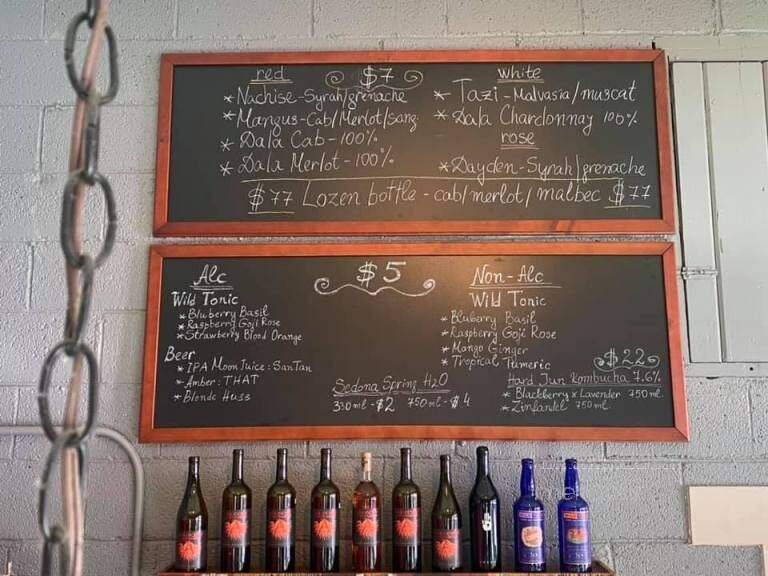 red
$7
white
* Nachise - Syrah/grenache
* Mangus - Cab/Merlot/sang.
* Dala Cab - 100%
* Dala Merlot - 100%
* Tazi - Malvasia/muscat
* Dala Chardonnay 100%
rose
* Dayden - Syrah/grenache
$77 Lozen bottle - cab/merlot/malbec $77
$5
Alc
Wild Tonic
* Bluberry Basil
* Raspberry Goji Rose
* Strawberry Blood Orange
Beer
* IPA Moon Juice: SanTan
* Amber: THAT
* Blonde Huss
Sedona Spring H2O
330 ml - $2 750 ml - $4
Non-Alc
Wild Tonic
* Bluberry Basil
* Raspberry Goji Rose
* Mango Ginger
* Tropical Tumeric
$22
Hard Jun Kombucha 7.6%
* Blackberry x Lavender 750 ml.
* Zinfandel 750 ml.